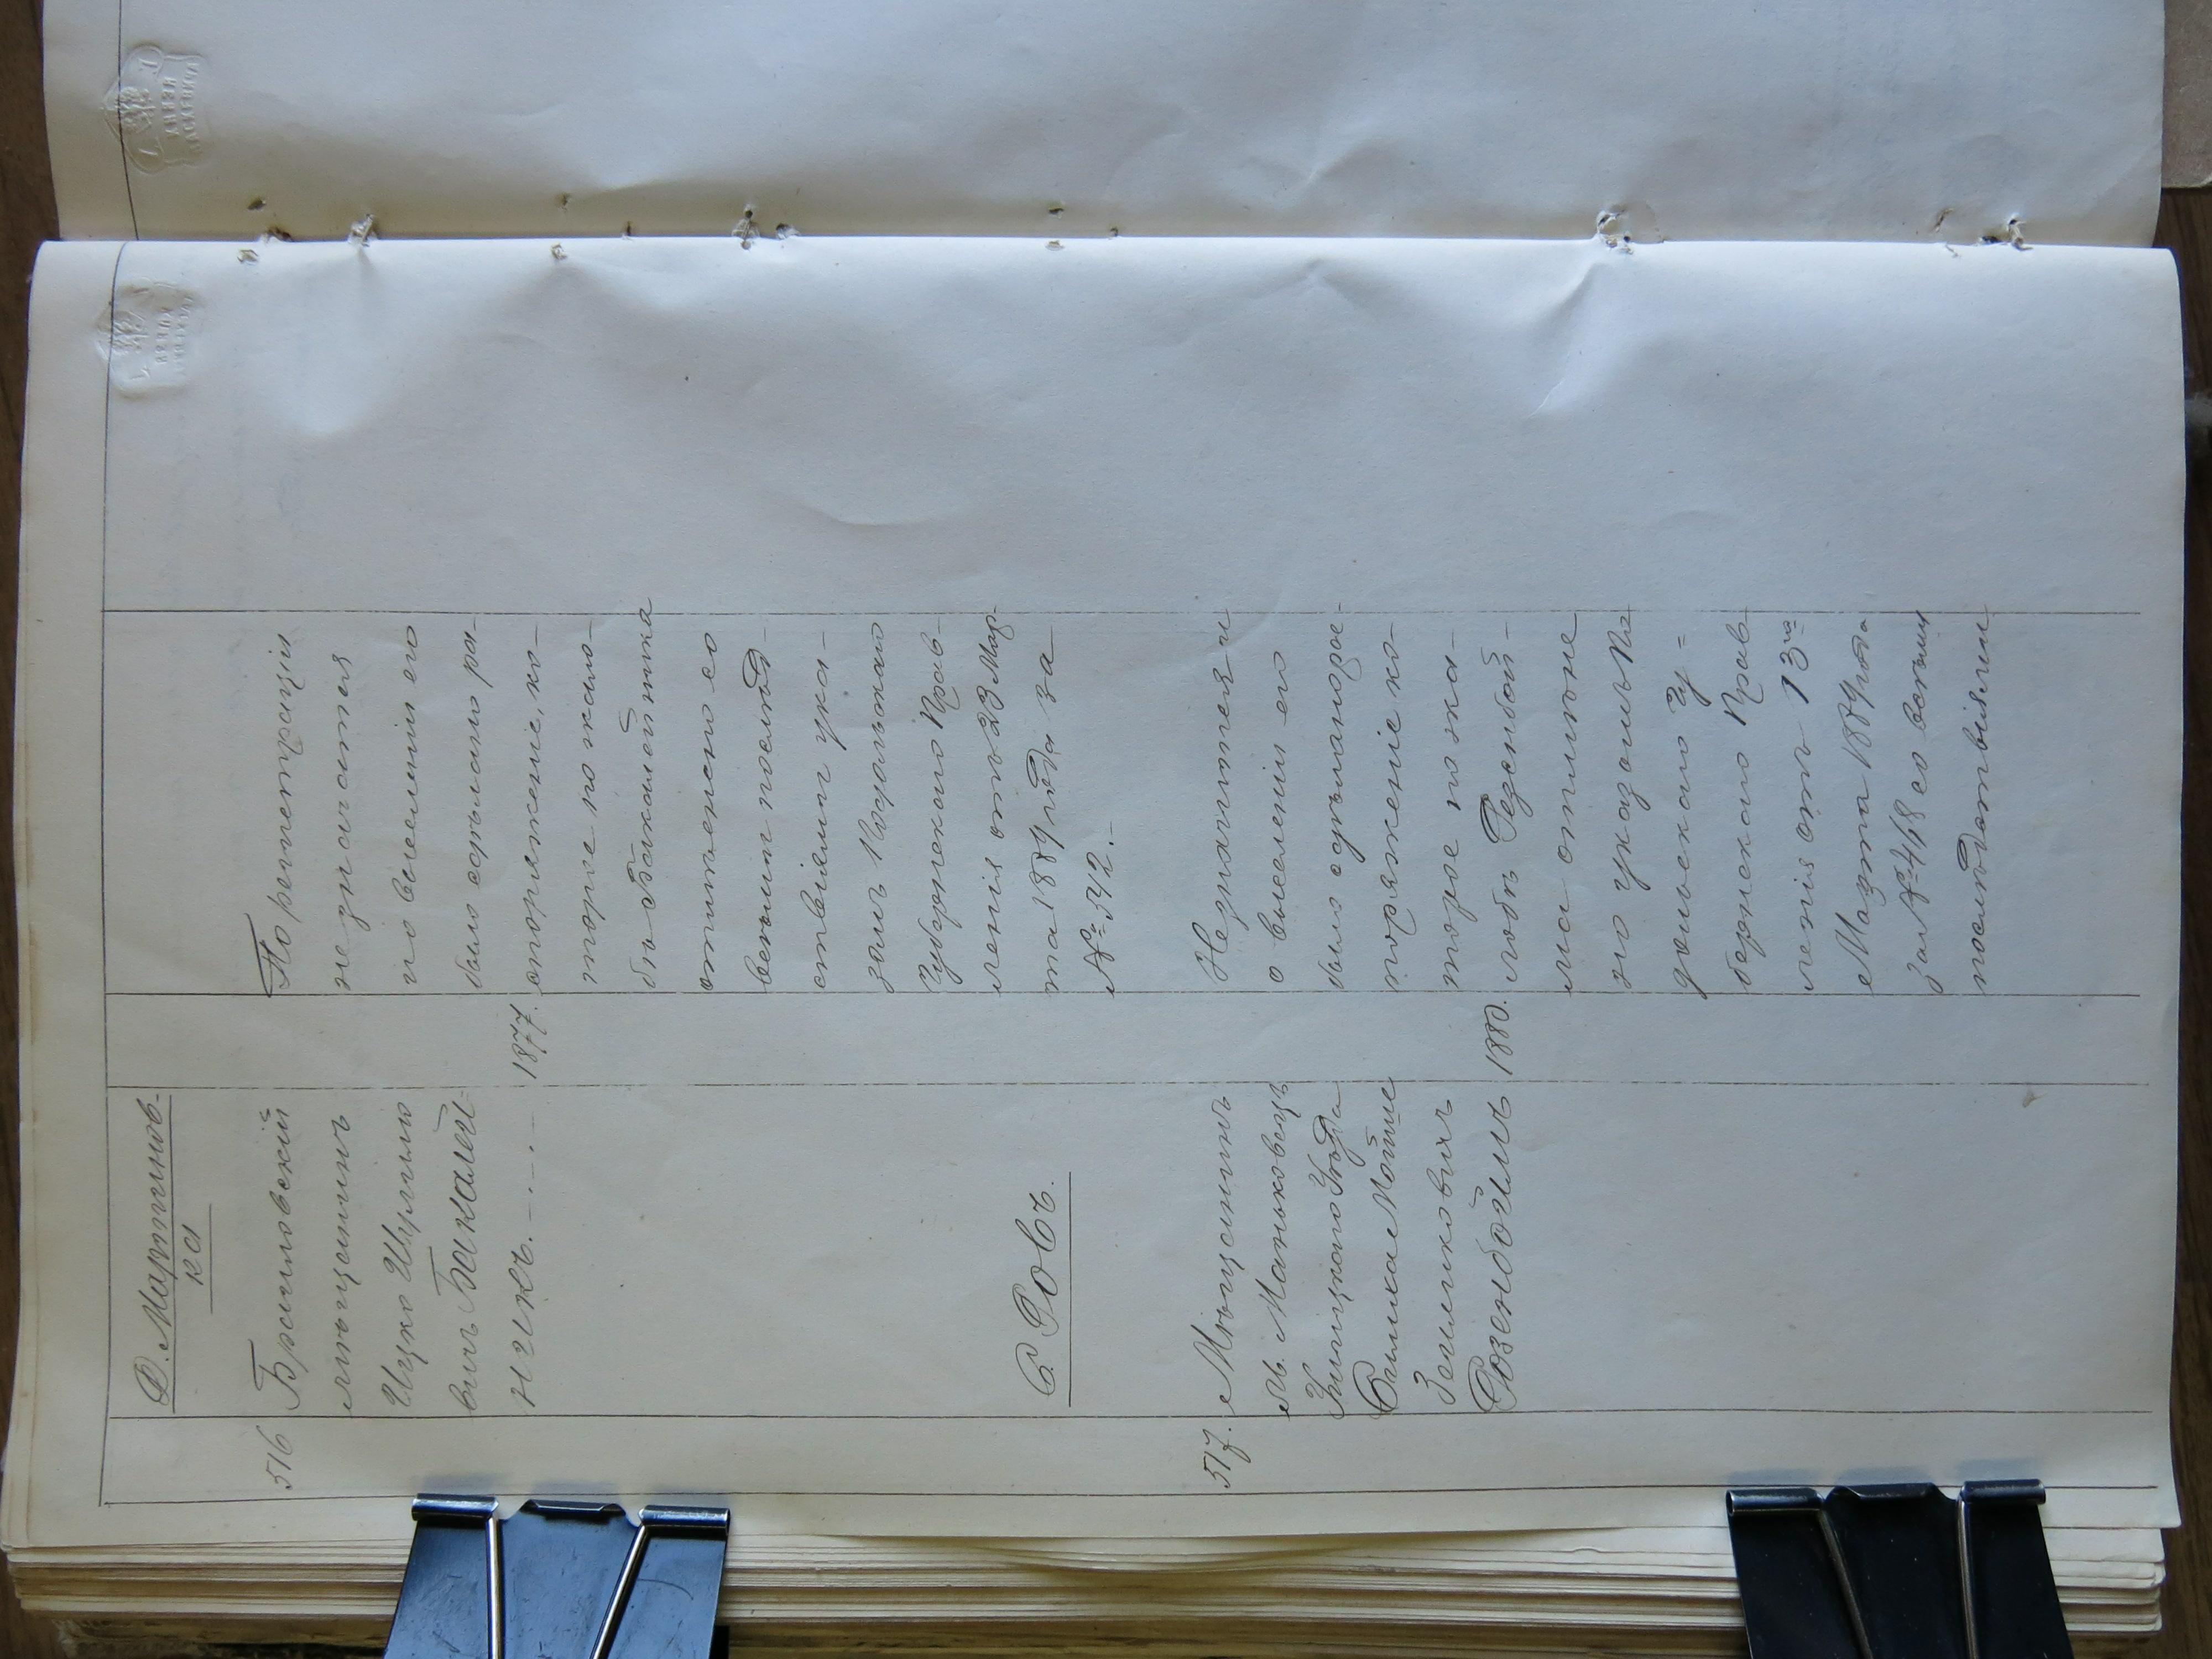 Д. Мартинов-
ка
516
Браиловскій
мѣщанинъ
Ицко Шулимо
вичъ Бакалей-
никъ.
1877.
По регистраціи
не значится
и о выселеніи его
было сдѣлано ра-
споряженіе, ко-
торое по жало-
бѣ Бакалейника
отмѣнено со
всѣми послѣд-
ствіями ука-
зомъ Подольскаго
Губернскаго Прав-
ленія отъ 23 Мар-
та 1884 года за
№ 342.-
С. Ровъ.
517.
Мѣщанинъ
м. Маньковецъ
Ушицкаго Уѣзда
Мойше
Зейликовичъ
Розенбоймъ
1880.
Незначится и
о выселеніи его
было сдѣлано рас-
поряженіе ко-
торое по жа-
лобѣ Розенбой-
ма отмѣне
но указомъ По
дольскаго Гу=
бернскаго Прав
ленія отъ 13го
Марта 1884 года
за № 418 со всѣми
послѣдствіями